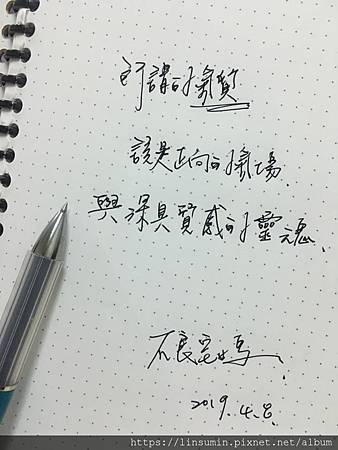 所謂的氣質
該是正向的氣場
與深具質感的靈魂
不良
2019.4.8.
https://linsumin.pixnet.net/album